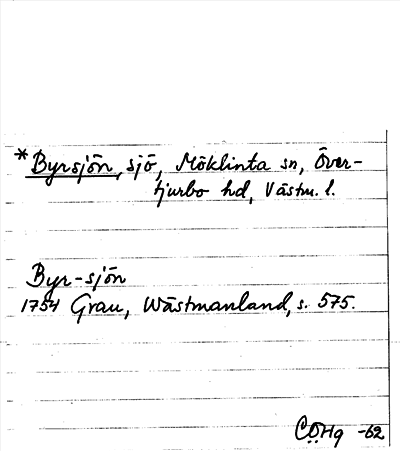 * Byrsjön, sjö, Möklinta sn, Över-
tjurbo hd, Västm. l.
Byr-sjön
1754 Grau, Wästmanland, s. 575.
CÖHg -62